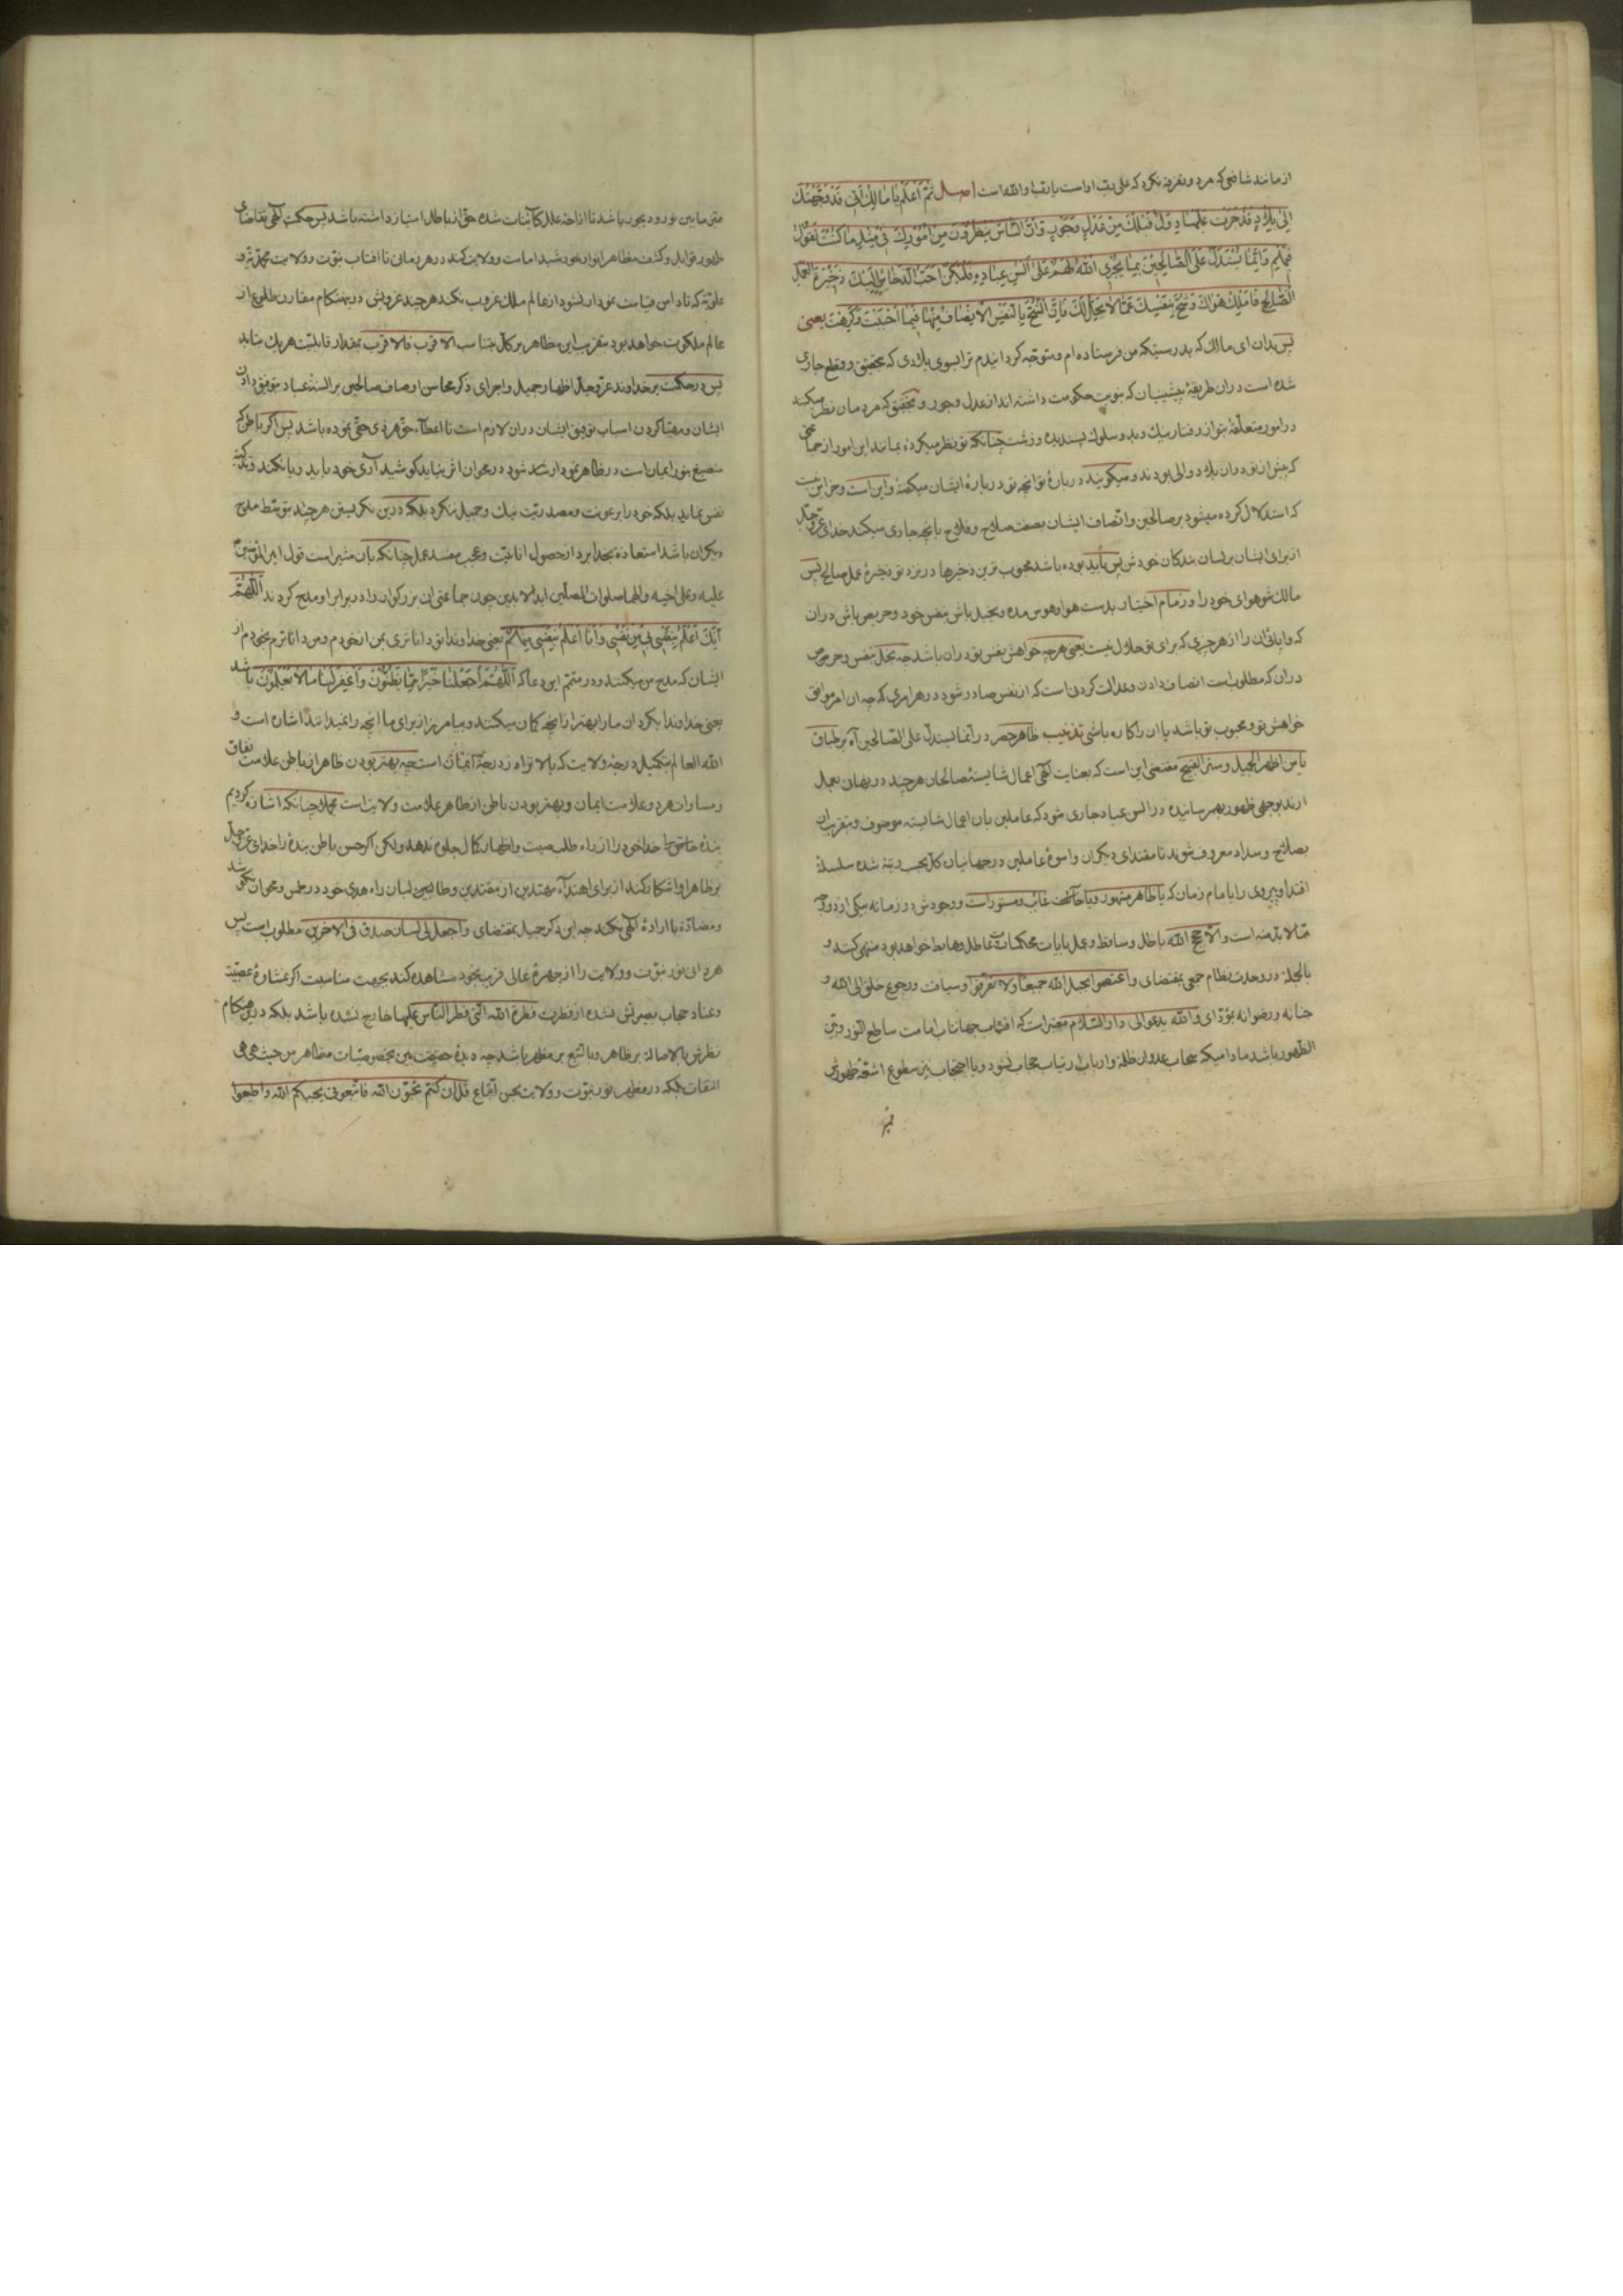 از مانند شافعی که مرد و نفرت نکرد که علی رب او است یا رب او الله است اصل ثُمَّ اعْلَمْ يا مالِكُ أَنّي قَدْ وَجَّهْتُكَ
إِلى بِلادٍ قَدْ جَرَتْ عَلَيْها دُوَلٌ قَبْلَكَ مِنْ عَدْلٍ وَجَوْرٍ وَأَنَّ النّاسَ يَنْظُرُونَ مِنْ أُمُورِكَ في مِثْلِ ما كُنْتَ
وَإِنَّما يُسْتَدَلُّ عَلَى الصّالِحينَ بِما يُجْرِي اللّهُ لَهُمْ عَلى أَلْسُنِ عِبادِهِ فَلْيَكُنْ أَحَبَّ الذَّخائِرِ إِلَيْكَ ذَخيرَةُ العَمَلِ
الصّالِحِ فَامْلِكْ هَواكَ وَشُحَّ بِنَفْسِكَ عَمّا لا يَحِلُّ لَكَ فَإِنَّ الشُّحَّ بِالنَّفْسِ الاِنْصافُ مِنْها فيما أَحْبَبْتَ وَكَرِهْتَ یعنی
پس بدان ای مالک که بدرستیکه من فرستاده ام و متوجه کردانیدم ترا بسوی بلادی که بتحقیق و قطع جاری
شده است در ان طریقهٔ پیشینیان که بنوبت حکومت داشته اند از عدل و جور و بتحقیق که مردمان نظر میکنند
در امور متعلقهٔ بتو از رفتار نیک و بد و سلوک پسندیده و زشت چنانکه تو نظر میکردهٔ بمانند این امور از
که پیش از تو در ان بلاد والی بودند و میگویند در بارهٔ تو انچه تو در بارهٔ ایشان میکفتهٔ و این است و جز این نیست
که استدلال کرده میشود بر صالحین و اتصاف ایشان بصفت صلاح و فلاح بانچه جاری میکند خدای عزوجل
از برای ایشان بر لسان بندکان خودش پس باید بوده باشد محبوب ترین ذخیرها در نزد تو ذخیرهٔ عمل صالح پس
مالک شو هوای خود را و زمام اختیار بدست هوا و هوس مده و بخیل باش بنفس خود و حریص باش در ان
که وا پائی ان را از هر چیزی که برای تو حلال نیست یعنی هر چه خواهش نفس تو در ان باشد چه بخل بنفس و حرص
در ان که مطلوب است انصاف دادن و عدالت کردنی است که از نفس صادر شود در هر امری که چه ان امر موافق
خواهش تو و محبوب تو باشد یا ان را کاره باشی تذنیب ظاهر حصر در انما یستدل علی الصالحین آه بر طباق
یا من اظهر الجمیل و ستر القبیح مقتضی این است که بعنایت الهی اعمال شایستهٔ صالحان هر چند در نهان بعمل
ارند بوجهی ظهور بهم رسانیده در السن عباد جاری شود که عاملین بان اعمال شایسته موصوف و
بصلاح و سداد معروف شوند تا مقتدای دیکران و اسوهٔ عاملین در جهانیان کل بحسب رتبته شده سلسلهٔ
اقتدا و پیروی را با مام زمان که یا ظاهر مشهور و یا خائف غائب و مستور است و وجودش در زمانه
مما لا بد منه است و الا حجج الله باطل و ساقط و عمل بایات محکمات عاطل و هابط خواهد بود منتهی کنند و
بالجمله در وحدت نظام جمعی بمقتضای و اعتصموا بحبل الله جمیعا ولا تفرقوا و سیاقت و رجوع خلق الی الله و
جنانه و رضوانه بمؤدّای و الله یدعو الی دار السلام معتبر است که افتاب جهانتاب امامت ساطع النور و بین
الظهور باشد مادامیکه سحاب عدوان ظلمه و ارباب ارتیاب حجاب نشود و با احتجاب نیز سطوع اشعهٔ ظهورش
ما بین نور و دیجور باشد تا ازاحهٔ علل کائنات شده حق از باطل امتیاز داشته باشد پس حکمت الهی بتقاضای
ظهور فواید و کشف مظاهر انوار خورشید امامت و ولایت کند در هر زمانی تا افتاب نبوت و ولایت محمدیه و
علویه که تا دامن قیامت نمودار نشود از عالم ملک غروب نکند هر چند غروبش در هنکام مقارن طلوع از
عالم ملکوت خواهد بود بتقریب این مظاهر بر کل بتناسب الاقرب فالاقرب بمقدار قابلیت هر یک بتابد
پس در حکمت بر خداوند عزوجل اظهار جمیل و اجرای ذکر محاسن اوصاف صالحین بر السنهٔ عباد بتوفیق دادن
ایشان و مهیا کردن اسباب توفیق ایشان در ان لازم است تا اعطاء حق هر ذی حقی نموده باشد پس اکر باطن که
منصبغ بنور ایمان است در ظاهر نمودار شد شود در عنوان اثر نباید کوشید آری خود باید ریا نکند و
نفس نماید بلکه خود را بر عونت و مصدریت نیک و جمیل ننکرد بلکه در این نکریستن هر چند بتوسط مدح
دیکران باشد استعاذه بخدا برد از حصول انانیت و عجب مفسد عمل چنانکه بان مشیر است قول امیر المؤمنین
علیه و علی اخیه و الهما صلوات المصلین ابد الابدین چون جماعتی ان بزرکوار را در برابر او مدح کردند اللّهُمَّ
إِنَّكَ أَعْلَمُ بِنَفْسي مِنْ نَفْسي وَأَنا أَعْلَمُ بِنَفْسي مِنْهُمْ یعنی خداوندا تو داناتری بمن از خودم و من داناترم بخودم از
ایشان که مدح من میکنند و در متمم این دعا که اللّهُمَّ اجْعَلْنا خَيْراً مِمّا يَظُنُّونَ وَاغْفِرْ لَنا ما لا يَعْلَمُونَ باشد
یعنی خداوندا بکردان ما را بهتر از انچه کمان میکنند و بیامرز از برای ما انچه را نمیدانند اشاره است و
الله العالم بتکمیل درجهٔ ولایت که بالاتر از درجهٔ ایمان است چه بهتر بودن ظاهر از باطن علامت نفاق
و مساوات هر دو علامت ایمان و بهتر بودن باطن از ظاهر علامت ولایت است مجملا چنانکه اشاره کردیم
بندهٔ خاص خدا خود را از راه طلب صیت و اظهار کمال جلوه ندهد ولکن اکر حسن باطن بنده را خدای عزوجل
بر ظاهر او اشکار کند از برای اهتداء مهتدین از مقتدین و طالبین لسان راه هدی خود در طمس و محو ان نکوشد
و مضاده با ارادهٔ الهی نکند چه این ذکر جمیل بمقتضای و اجعل لی لسان صدق فی الاخرین مطلوب است پس
هر دم ان نور نبوت و ولایت را از چهرهٔ عالی قرب بخود مشاهده کند بجهت مناسبت اکر غشاوهٔ عصبیت
و عناد حجاب بصیرتش نشده از فطرت فطرة الله التی فطر الناس علیها خارج نشده باشد بلکه در این هنکام
نظرش بالاصالهٔ بر ظاهر و بالتبع بر مظهر باشد چه دیدهٔ حقیقت بین بخصوصیات مظاهر من حیث هی هی
التفات بلکه در مظهر نور نبوت و ولایت بحسن اتباع قل ان کنتم تحبون الله فاتبعونی یحببکم الله و اطیعوا